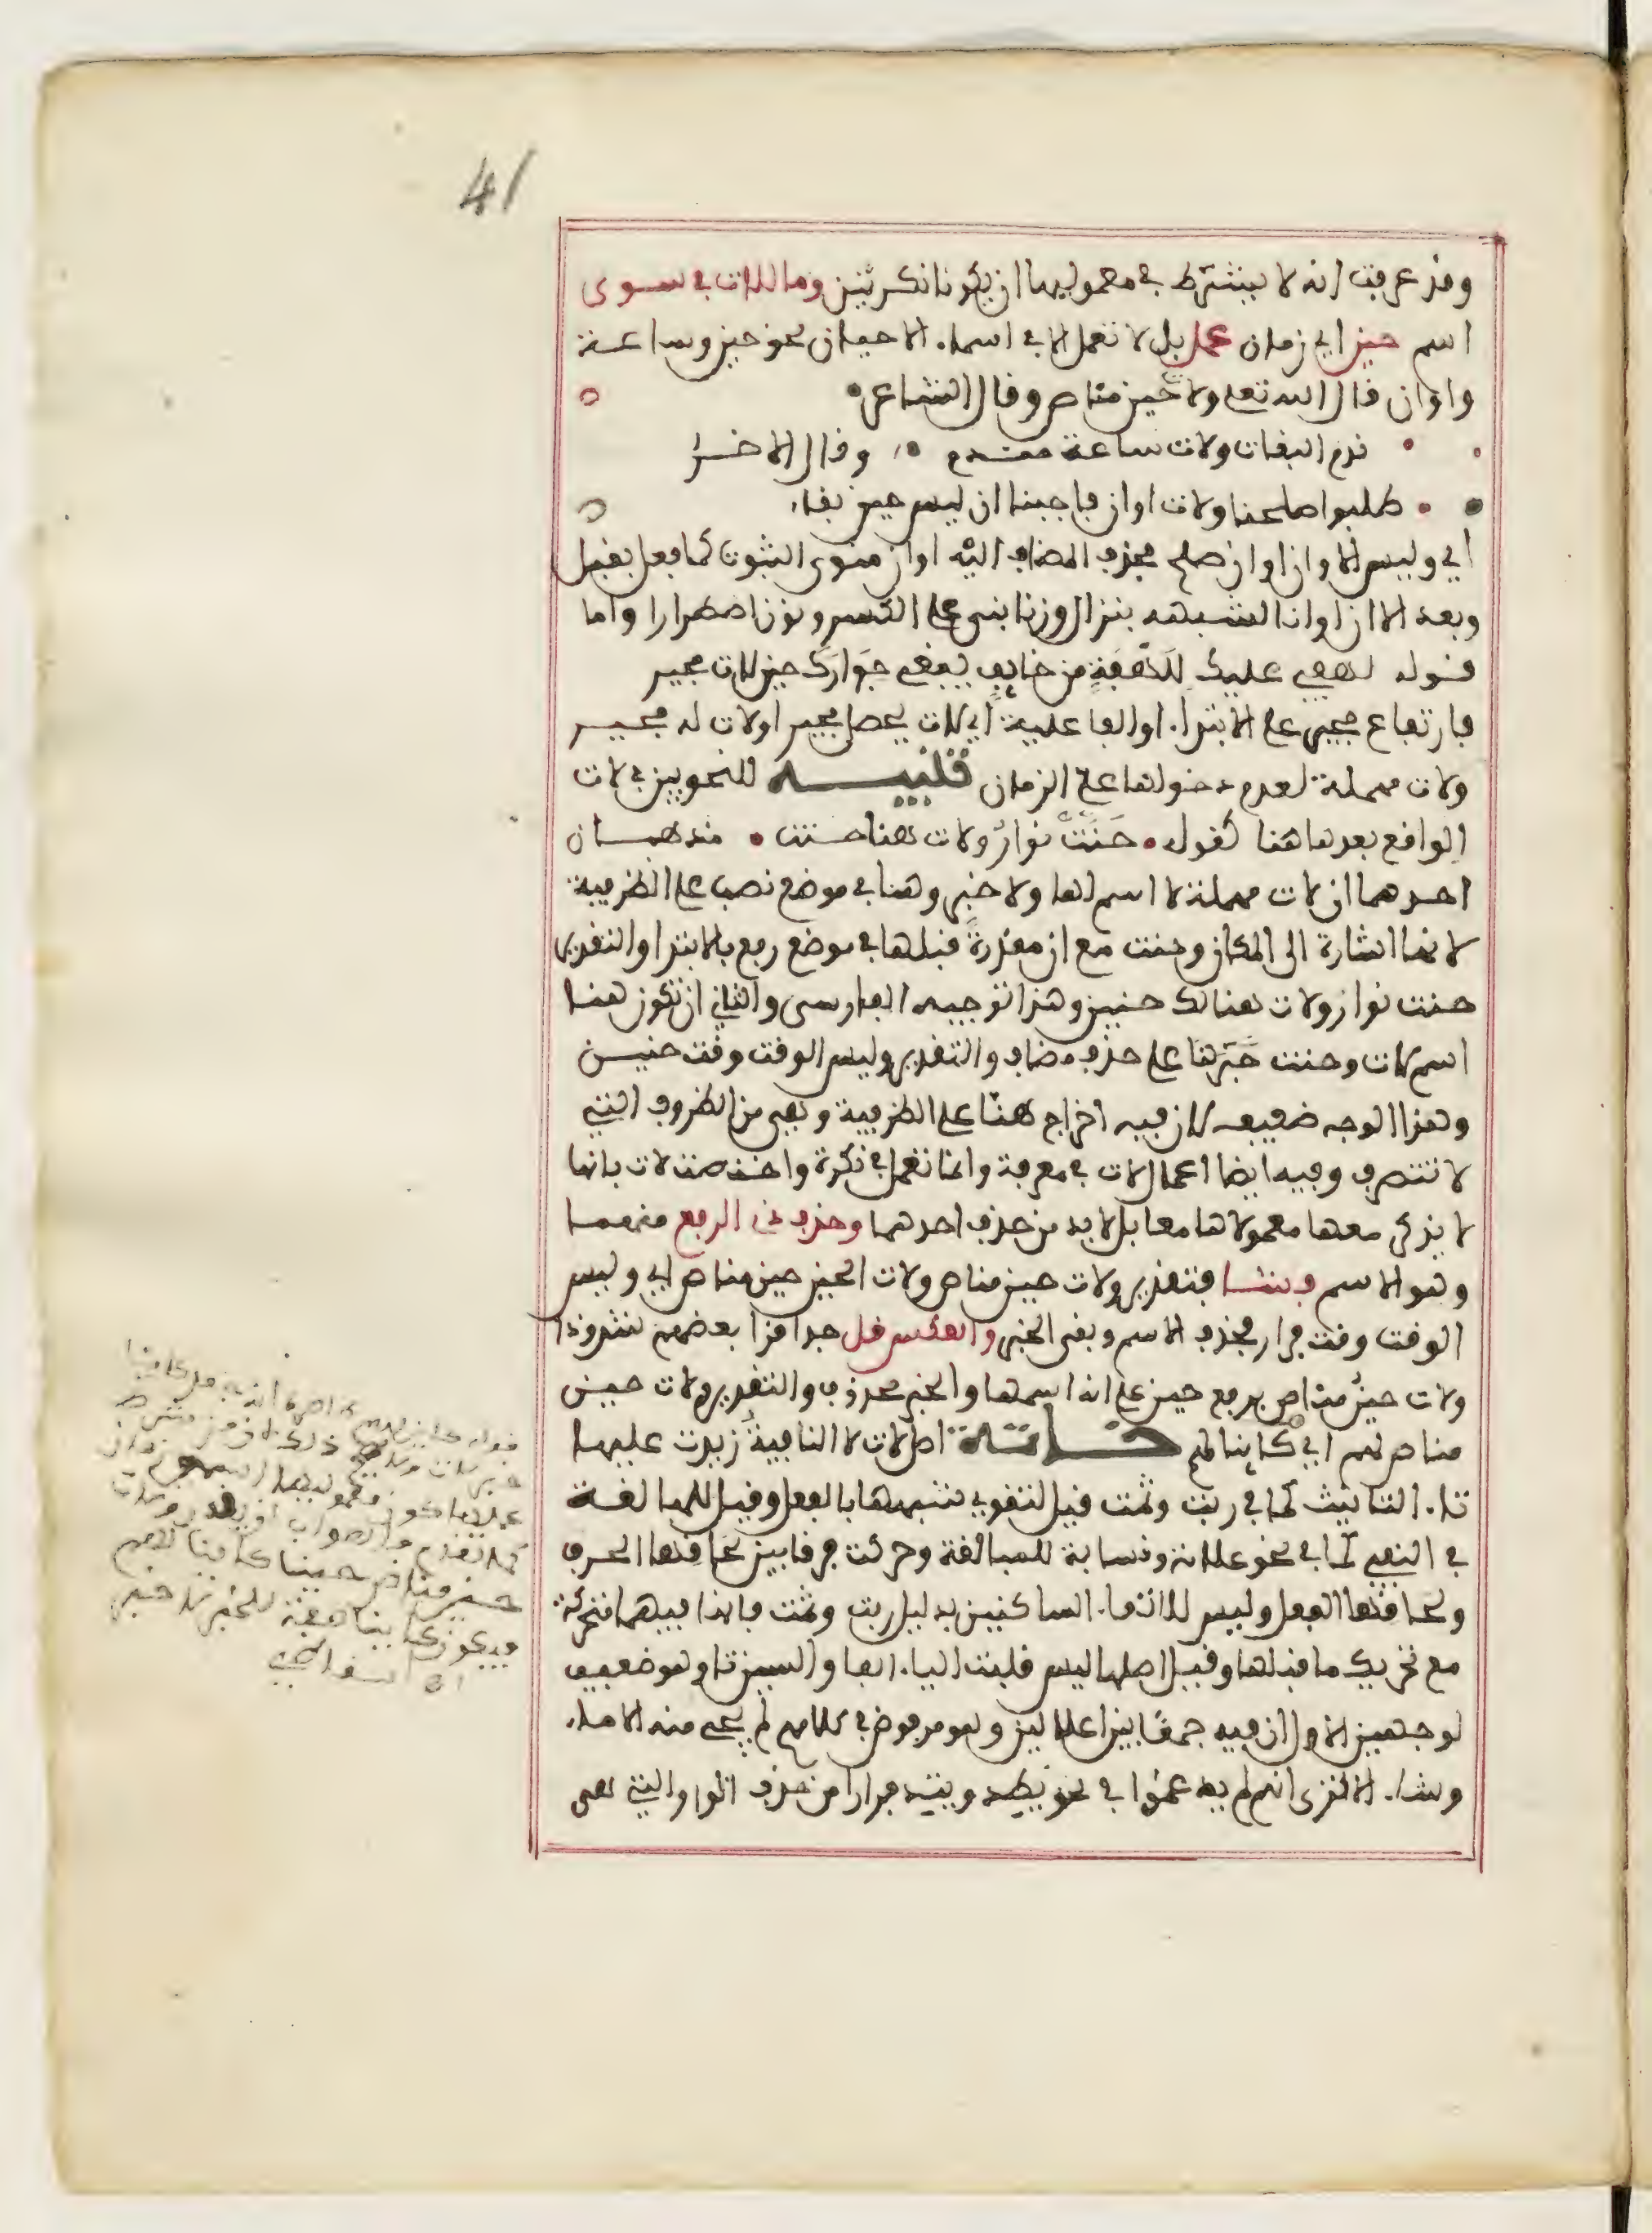 41
وقد عرفت انه لا يشترط في معموليها ان يكونا نكرتين وما للات في سوى
اسم حين اي زمان عمل بل لا تعمل الا في اسماء الاحيان نحو حين وساعة
واوان قال الله تعلى ولات حين مناص وقال الشاعر
ندم البغات ولات ساعة مندم وقال الاخر
طلبوا صلحنا ولات اوان فاجبنا ان ليس حين بقاء
اي وليس الاوان اوان صلح فحذف المضاف اليه اوان منوى الثبوت كما فعل بقبل
وبعد الا ان اوانا لشبهه بنزال وزنا بنى على الكسر ونون اضطرارا واما
قوله لهفي عليك للهفة من خايف يبغي جوارك حين لات مجير
فارتفاع مجير على الابتداء او الفاعلية اي لات يحصل مجير او لات له مجير
ولات مهملة لعدم دخولها على الزمان تنبيه للنحويين في لات
الواقع بعدها هنا كقوله حنت نوار ولات هنا حنت مذهبان
احدهما ان لات مهملة لا اسم لها ولا خبر وهنا في موضع نصب على الظرفية
لانها اشارة الى المكان وحنت مع ان مقدرة قبلها في موضع رفع بالابتدا والتقدير
حنت نوار ولات هنالك حنين وهذا توجيه الفارسى والثاني ان تكون هنا
اسم لات وحنت خبرها على حذف مضاف والتقدير وليس الوقت وقت حنين
وهذا الوجه ضعيف لان فيه اخراج هنا على الظرفية وهي من الظروف التي
لا تتصرف وفيه ايضا اعمال لات في معرفة وانما تعمل في نكرة واختصت لات بانها
لا يذكر معها معمولاها معا بل لا بد من حذف احدهما وحذف ذى الرفع منهما
وهو الاسم فشا فتقدير ولات حين مناص ولات الحين حين مناص اي وليس
الوقت وقت فرار فحذف الاسم وبقى الخبر والعكس قل جدا قرا بعضهم شذوذا
ولات حين مناص برفع حين على انه اسمها والخبر محذوف والتقدير ولات حين
مناص لهم اي كاينا لهم خاتمة اصل لات لا النافية زيدت عليها
تاء التانيث كما في ربت وثمت قيل لتقوي شبهها بالفعل وقيل للمبالغة
في النفي كما في نحو علامة ونسابة للمبالغة وحركت فرقا بين لحاقها الحرف
ولحاقها الفعل وليس لالتقاء الساكنين بدليل ربت وثمت فانها فيهما متحركة
مع تحريك ما قبلها وقيل اصلها ليس قلبت الياء الفا والسين تاء وهو ضعيف
لوجهين الاول ان فيه جمعا بين اعلالين وهو مرفوض في كلامهم لم يجي منه الا ماء
وشاء الا ترى انهم لم يدغموا في نحو يطد ويتد فرارا من حذف الواو التي هي